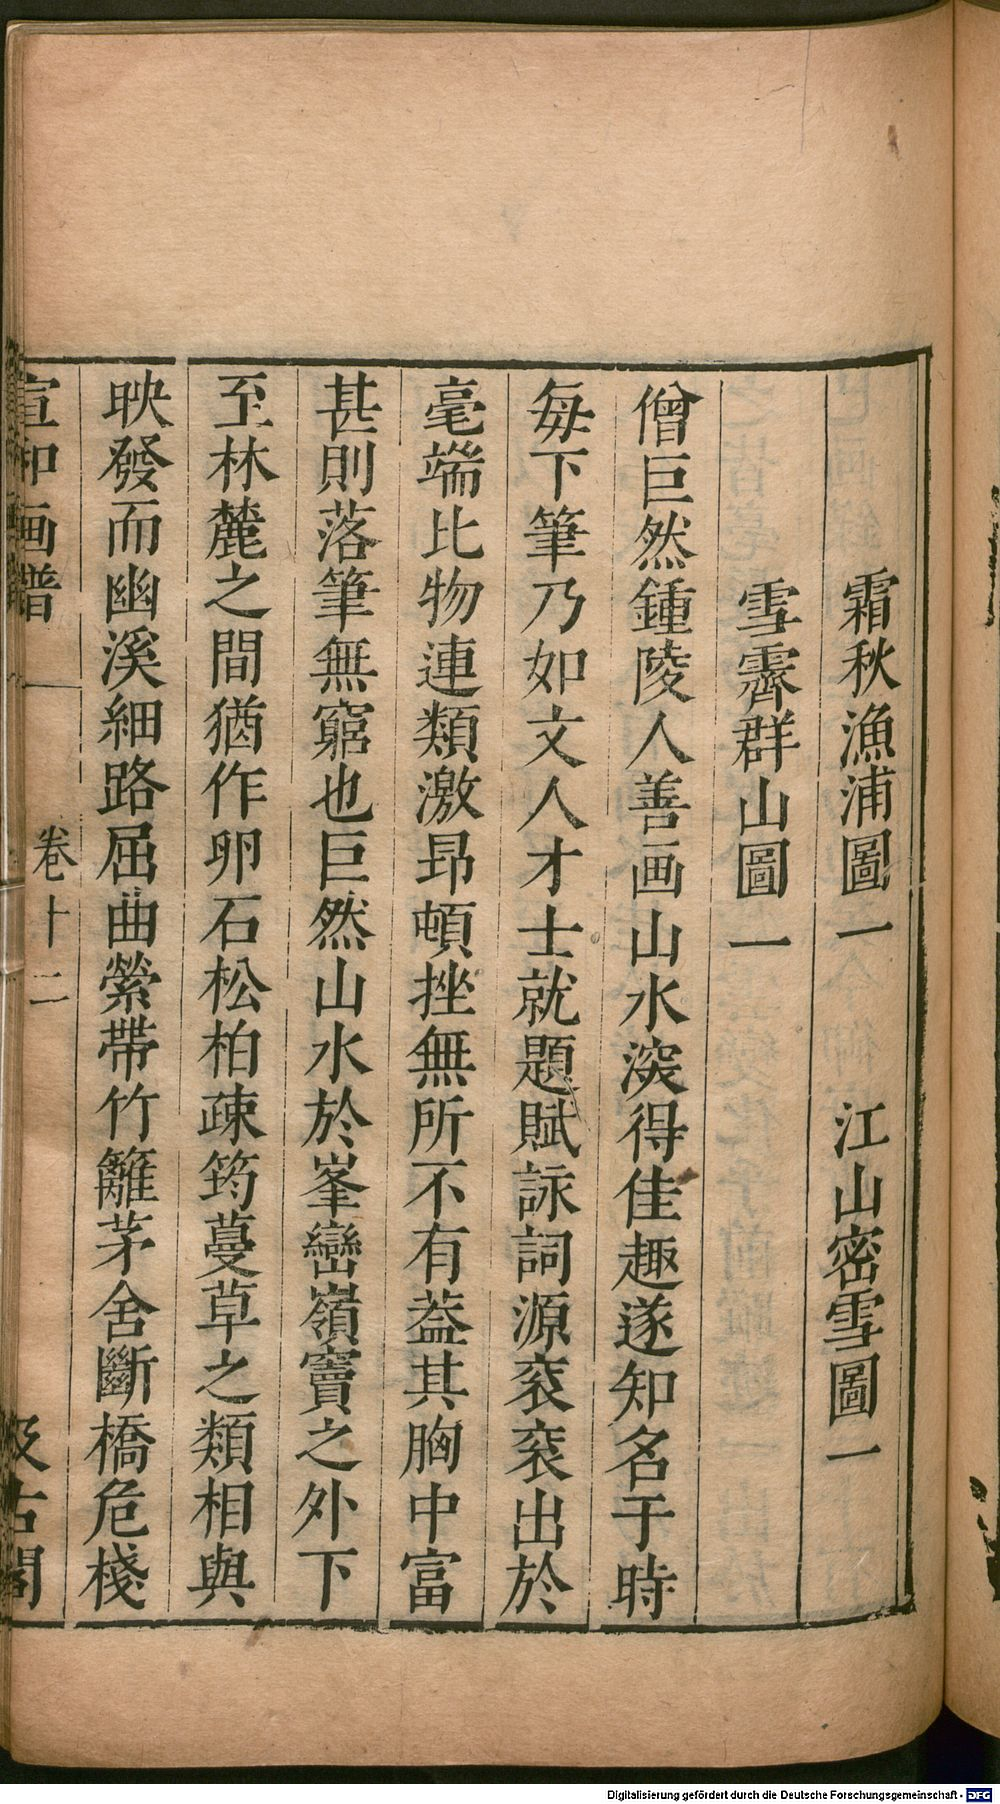 霜秋漁浦圖一　江山密雪圖一
雪霽群山圖一
僧巨然鍾陵人善画山水深得佳趣遂知名于時
每下筆乃如文人才士就題賦詠詞源衮衮出於
毫端比物連類激昂頓挫無所不有葢其胸中富
甚則落筆無窮也巨然山水於峯巒嶺竇之外下
至林麓之間猶作卵石松柏疎筠蔓草之類相與
映發而幽溪細路屈曲縈帶竹籬茅舍斷橋危棧
宣和画譜　卷十二　汲古閣
Digitalisierung gefördert durch die Deutsche Forschungsgemeinschaft - DFG